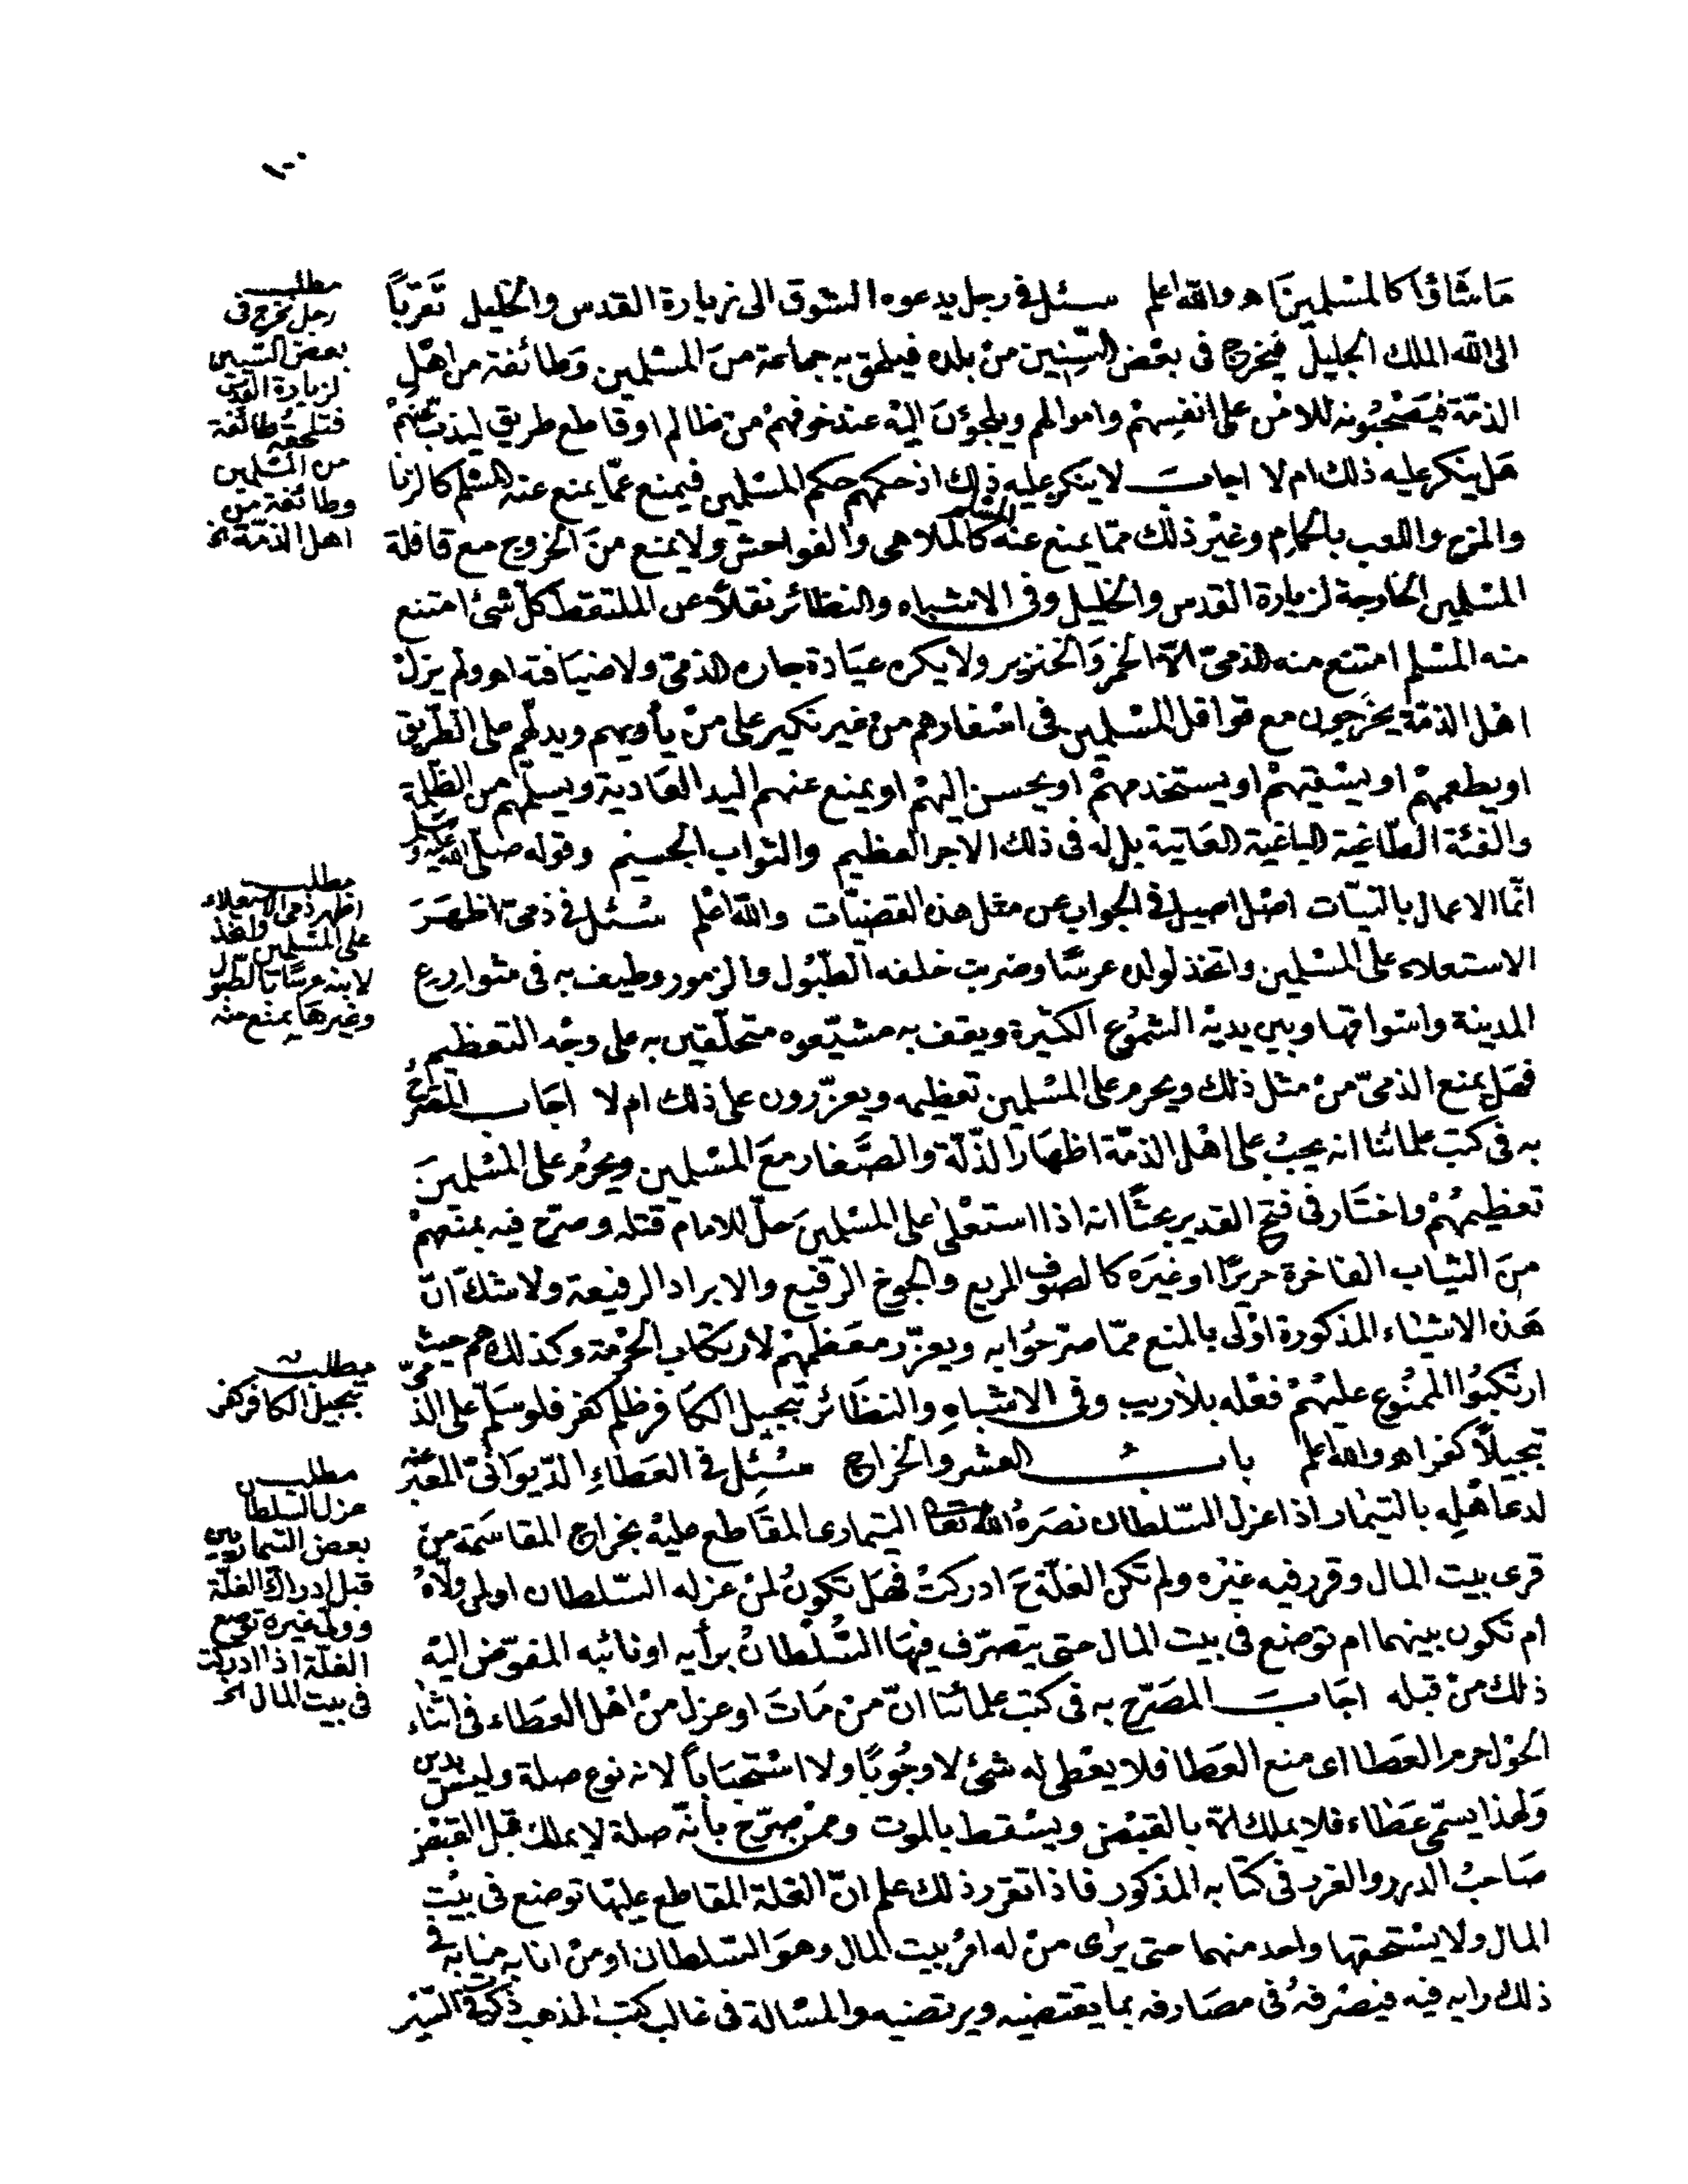 ١٠٠
ما شاؤا كالمسلمين اه والله اعلم سئل في رجل يدعوه الشوق الى زيارة القدس والخليل تقربًا
الى الله الملك الجليل فيخرج في بعض السنين من بلده فيلحق به جماعة من المسلمين وطائفة من اهل
الذمة فيصحبونه للامن على انفسهم واموالهم ويلجؤن اليه عند خوفهم من ظالم او قاطع طريق ليذب عنهم
هل ينكر عليه ذلك ام لا اجاب لا ينكر عليه ذلك اذ حكمهم حكم المسلمين فيمنع عما يمنع عنه المسلم كالزنا
والمزح واللعب بالحمام وغير ذلك مما يمنع عنه المسلم كالملاهى والفواحش ولا يمنع من الخروج مع قافلة
المسلمين الخارجة لزيارة القدس والخليل وفى الاشباه والنظائر نقلاً عن الملتقط كل شئ امتنع
منه المسلم امتنع منه الذمى الا الخمر والخنزير ولا يكره عيادة جاره الذمى ولا ضيافته اه ولم يزل
اهل الذمة يخرجون مع قوافل المسلمين فى اسفارهم من غير نكير على من يأويهم ويدلهم على الطريق
او يطعمهم او يسقيهم او يستخدمهم او يحسن اليهم او يمنع عنهم اليد العادية ويسلمهم من الظلمة
والفئة الطاغية الباغية العاتية بل له فى ذلك الاجر العظيم والثواب الجسيم وقوله صلى الله عليه وسلم
انما الاعمال بالنيات اصل اصيل في الجواب عن مثل هذه القضيات والله اعلم سئل في ذمى اظهر
الاستعلاء على المسلمين واتخذ لولده عرسًا وضربت خلفه الطبول والزمور وطيف به فى شوارع
المدينة واسواقها وبين يديه الشموع الكثيرة ويقف به مشيعوه متحلقين به على وجه التعظيم
فهل يمنع الذمى من مثل ذلك ويحرم على المسلمين تعظيمه ويعزرون على ذلك ام لا اجاب المصرح
به فى كتب علمائنا انه يجب على اهل الذمة اظهار الذلة والصغار مع المسلمين ويحرم على المسلمين
تعظيمهم واختار فى فتح القدير بحثًا انه اذا استعلى على المسلمين حل للامام قتله وصرح فيه بمنعهم
من الثياب الفاخرة حريرًا او غيره كالصوف المربع والجوخ الرفيع والابراد الرفيعة ولا شك ان
هذه الاشياء المذكورة اولى بالمنع مما صرحوا به ويعزر معظمهم لارتكاب الحرمة وكذلك هم حيث
ارتكبوا الممنوع عليهم فعله بلا ريب وفى الاشباه والنظائر تبجيل الكافر ظلم كفر فلو سلم على الذمى
تبجيلاً كفر اه والله اعلم باب العشر والخراج سئل في العطاء الديوانى المعبر عنه
لدعا اهله بالتيمار اذا عزل السلطان نصره الله تعا التيمارى المقاطع عليه بخراج المقاسمة من
قرى بيت المال وقرر فيه غيره ولم تكن الغلة ح ادركت فهل تكون لمن عزله السلطان او لمن ولاه
ام تكون بينهما ام توضع فى بيت المال حتى يتصرف فيها السلطان برأيه او نائبه المفوض اليه
ذلك من قبله اجاب المصرح به فى كتب علمائنا ان من مات او عزل من اهل العطاء فى اثناء
الحول حرم العطا اى منع العطا فلا يعطى له شئ لا وجوبًا ولا استحبابًا لانه نوع صلة وليس بدين
ولهذا يسمى عطاء فلا يملك الا بالقبض ويسقط بالموت وممن صرح بأنه صلة لا يملك قبل القبض
صاحب الدرر والغرر فى كتابه المذكور فاذا تقرر ذلك علم ان الغلة المقاطع عليها توضع فى بيت
المال ولا يستحقها واحد منهما حتى يرى من له امر بيت المال وهو السلطان او من انابه منابه فى
ذلك رايه فيه فيصرفه فى مصارفه بما يقتضيه ويرتضيه والمسالة فى غالب كتب المذهب ذكرت فى السير
مطلب
رجل يخرج فى
بعض السنين
لزيارة القدس
فتلحقه طائفة
من المسلمين
وطائفة من
اهل الذمة الخ
مطلب
اظهر ذمى الاستعلاء
على المسلمين واتخذ
لابنه عرسًا بالطبول
وغيرها يمنع منه
مطلب
تبجيل الكافر كفر
مطلب
عزل السلطان
بعض التيماريين
قبل ادراك الغلة
وولى غيره توضع
الغلة اذا ادركت
فى بيت المال الخ